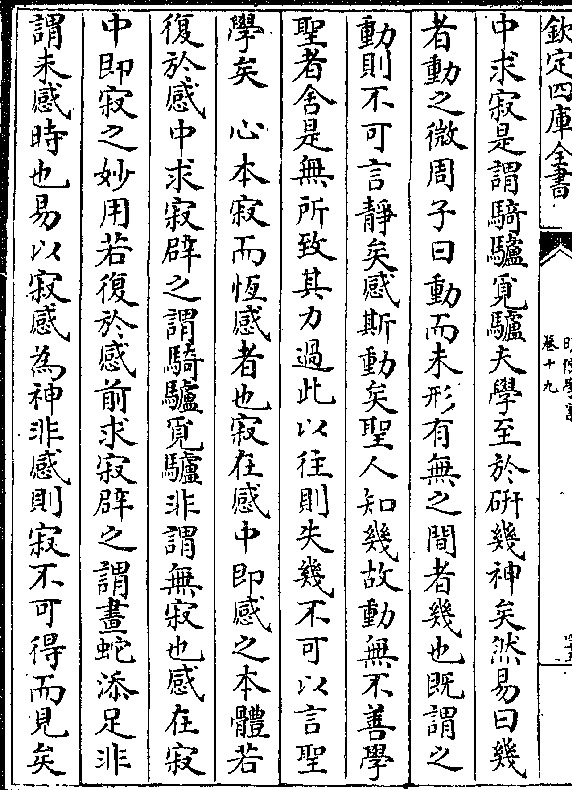 欽定四庫全書
明儒學案
卷十九
中求寂是謂騎驢覓驢夫學至於研幾神矣然易曰幾
者動之微周子曰動而未形有無之間者幾也既謂之
動則不可言靜矣感斯動矣聖人知幾故動無不善學
聖者舍是無所致其力過此以往則失幾不可以言聖
學矣　心本寂而恆感者也寂在感中即感之本體若
復於感中求寂辟之謂騎驢覓驢非謂無寂也感在寂
中即寂之妙用若復於感前求寂辟之謂畫蛇添足非
謂未感時也易以寂感為神非感則寂不可得而見矣